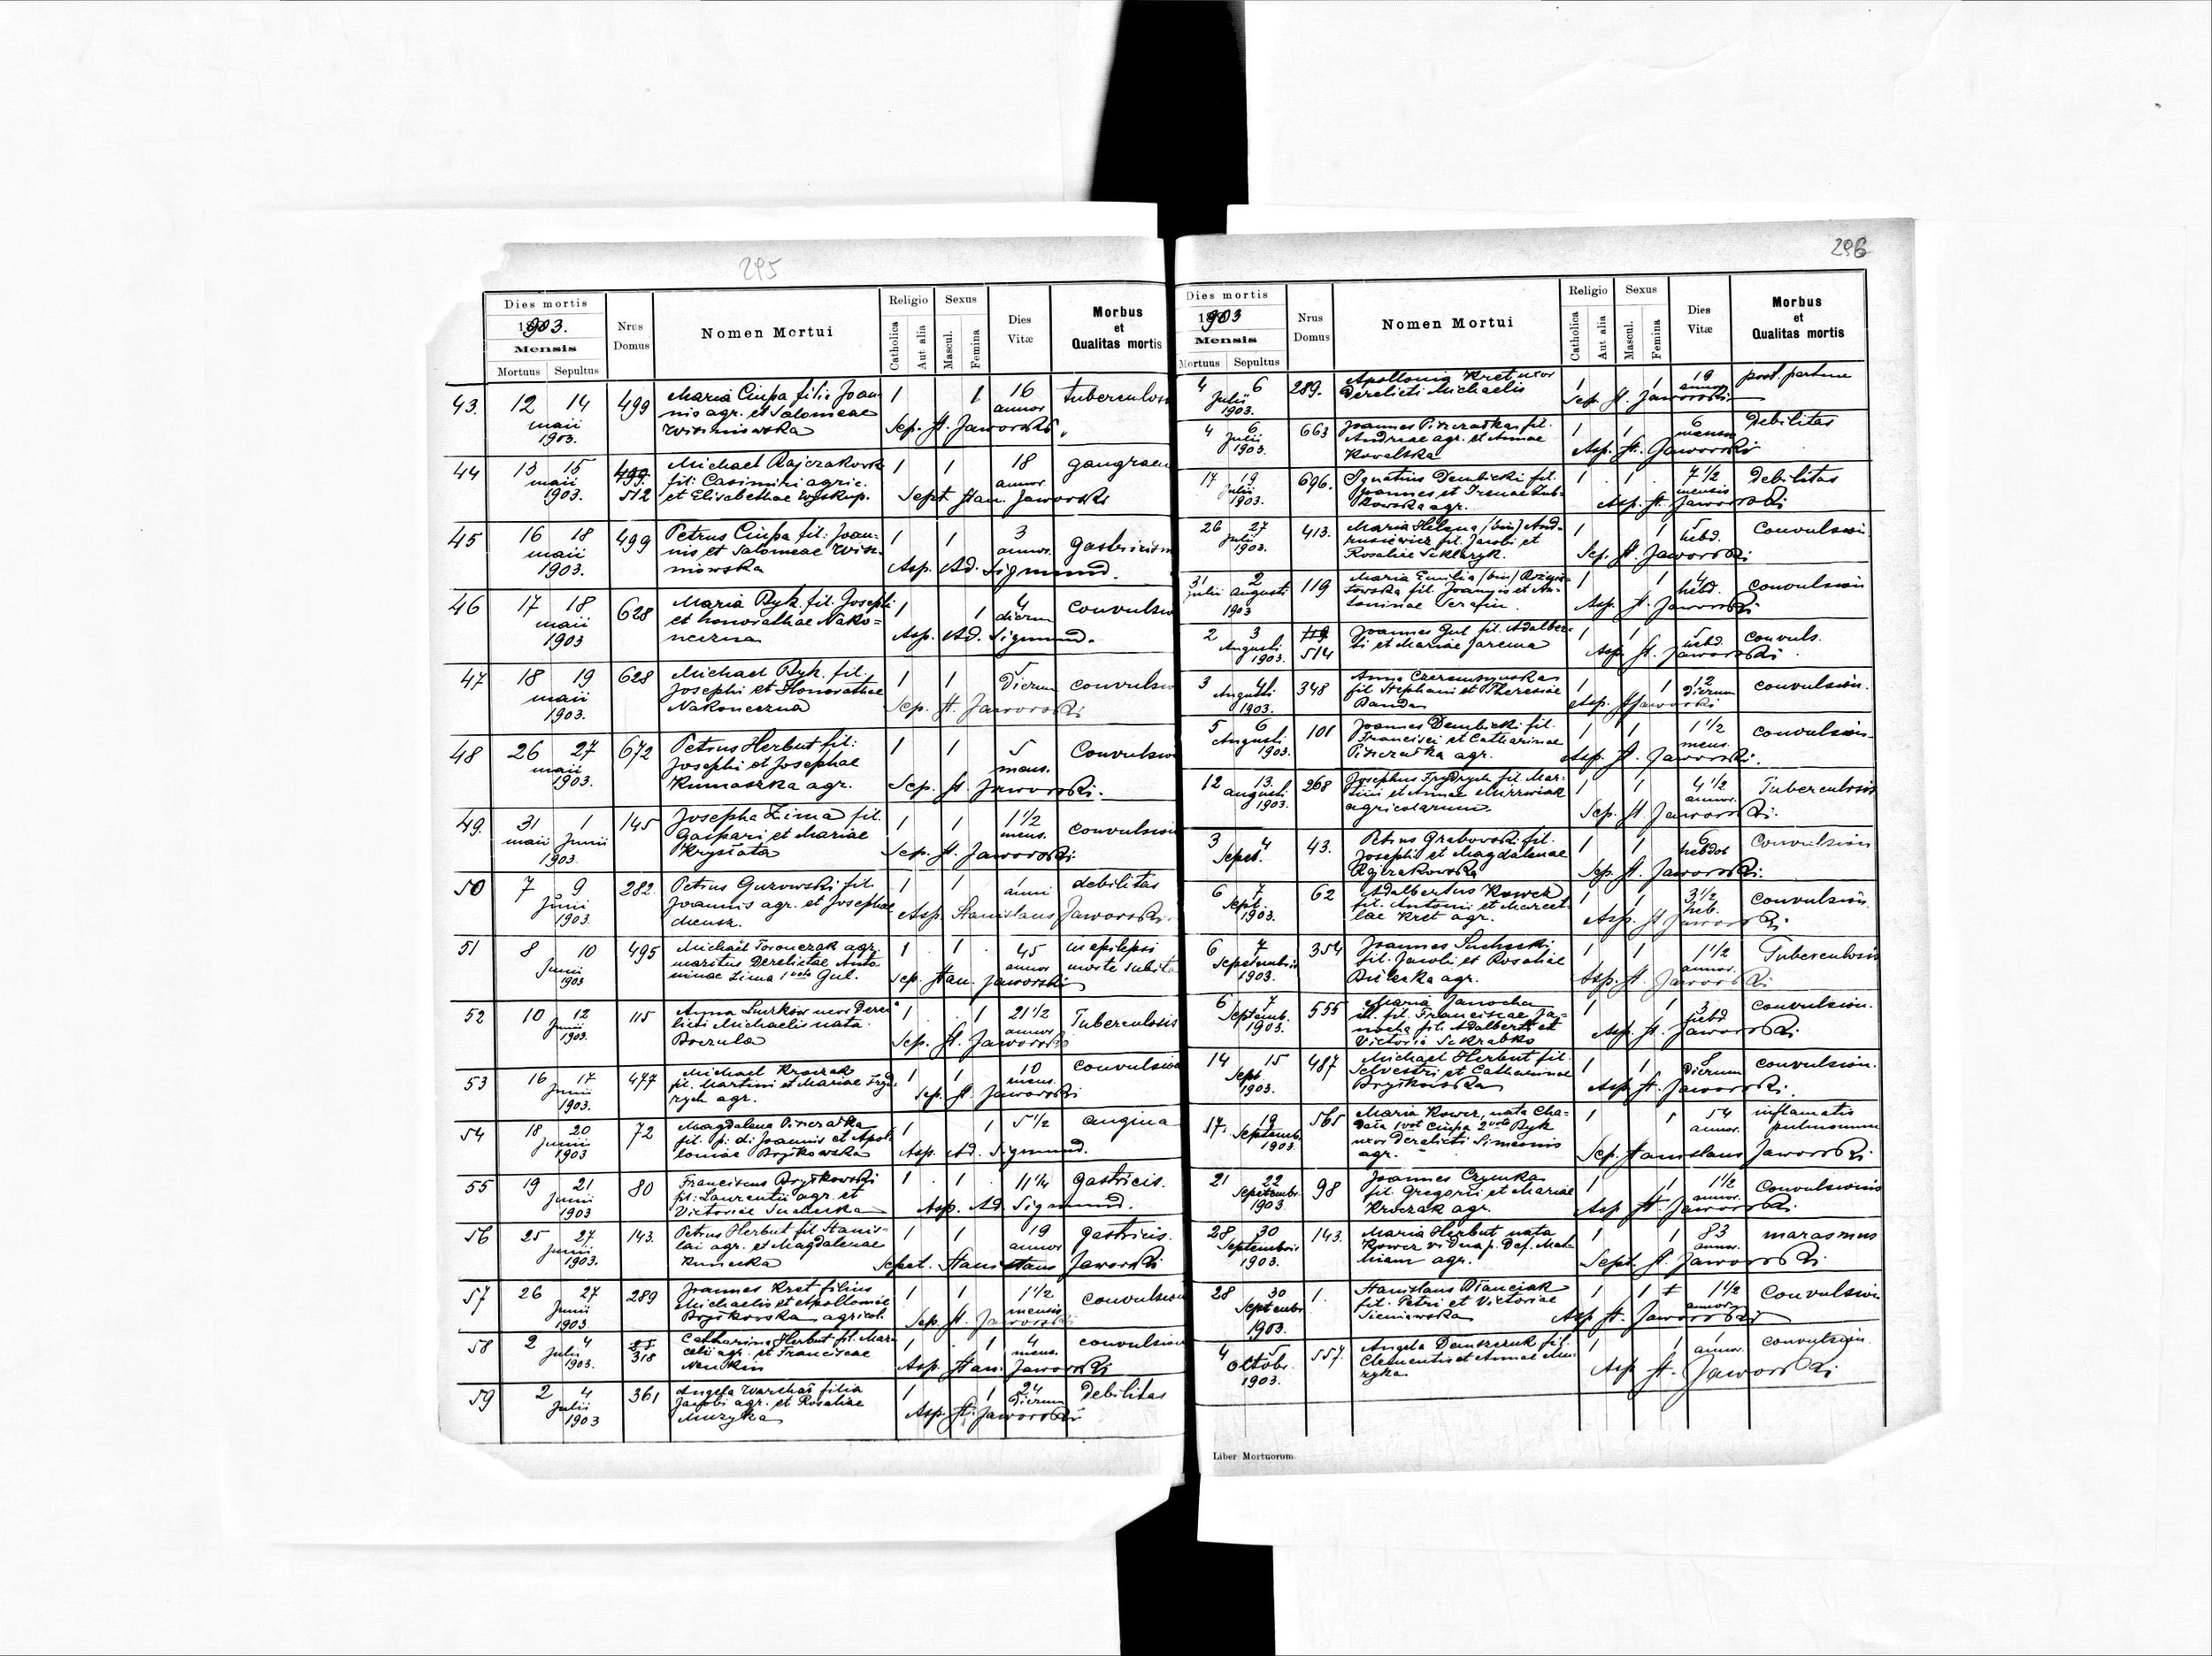 295
Dies mortis
1903.
Mensis
Mortuus Sepultus
Nrus Domus
Nomen Mortui
Religio
Catholica Aut alia
Sexus
Mascul. Femina
Dies Vitæ
Morbus et Qualitas mortis
43. 12 14 499 Maria Ciupa filia Joan- 1 1 16 tuberculosis
maii nis agr. et Salomeae annor
1903. Wiszniowska Sep. St. Jaworski
44 13 15 499. Michael Rajczakowski 1 1 18 gangraen
maii fil: Casimiri agric. annor
1903. 512 et Elisabethae Wyskup. Sept Stan. Jaworski
45 16 18 499 Petrus Ciupa fil: Joan- 1 1 3 gastricism
maii nis et Salomeae Wisz- annor.
1903. niowska Asp. Ad. Sigmund.
46 17 18 628 Maria Byk fil. Josephi 1 1 4 convulsio
maii et honorathae Nako= dierum
1903 neczna Asp. Ad. Sigmund.
47 18 19 628 Michael Byk fil. 1 1 5 convulsio
maii Josephi et Honorathae Dierum
1903. Nakoneczna Sep. St. Jaworski
48 26 27 672 Petrus Herbut fil: 1 1 5 Convulsio
maii Josephi et Josephae mens.
1903. Kumaszka agr. Sep. St. Jaworski.
49. 31 1 145 Josepha Zima fil. 1 1 1 1/2 convulsion
maii Junii Gaspari et Mariae mens.
1903. Kryształa Sep. St. Jaworski
50 7 9 282. Petrus Gurowski fil 1 1 1 debilitas
Junii Joannis agr. et Josephae anni
1903. Asp Stanislaus Jaworski
51 8 10 495 Michaël Toronczak agr. 1 1 45 in epilepsi
Junii maritus Derelictae Anto- annor morte subita
1903 ninae Zima 1 voto Gul. Sep. Stan. Jaworski
52 10 12 115 Anna Surkow uxor Dere- 1 1 21 1/2 Tuberculosis
Junii licti Michaelis nata annor
1903. Boczula Sep. St. Jaworski
53 16 17 477 Michael Kroczak 1 1 10 convulsion
Junii fil. Martini et Mariae Fryd- mens.
1903. rych agr. Sep. St. Jaworski
54 18 20 72 Magdalena Pinczałka 1 1 5 1/2 angina
Junii fil. p. d: Joannis et Apol-
1903 loniae Bryśkowska Asp. Ad. Sigmund.
55 19 21 80 Franciscus Bryśkowski 1 1 11 1/4 gastricis.
Junii fil: Laurentii agr. et
1903 Victoriae Suchecka Asp. Ad Sigmund.
56 25 27 143. Petrus Herbut fil Stanis- 1 1 19 gastricis.
Junii lai agr. et Magdalenae annor
1903. Kunecka Sepat. Stanislaus Jaworski
57 26 27 289 Joannes Kret filius 1 1 1 1/2 convulsion
Junii Michaelis et Apolloniae mensis
1903. Bryśkowska agricol. Sep. St. Jaworski
58 2 4 Catharina Herbut fil. Mar- 1 1 4 convulsion
Julii 318 celi agr. et Franciscae mens.
1903. Asp. Stan. Jaworski
59 2 4 361 Angela Warchał filia 1 1 24 Debilitas
Julii Jacobi agr. et Rosaliae Dierum
1903 Muzyka Asp. St. Jaworski
296
Dies mortis
1903
Mensis
Mortuus Sepultus
Nrus Domus
Nomen Mortui
Religio
Catholica Aut alia
Sexus
Mascul. Femina
Dies Vitæ
Morbus et Qualitas mortis
4 6 289. Apollonia Kret uxor 1 1 19 post partum
Julii Derelicti Michaelis annor
1903. Sep St. Jaworski
4 6 663 Joannes Pinczałka fil. 1 1 6 Debilitas
Julii Andreae agr. et Annae mensu
1903. Kowalska Asp. St. Jaworski
17 19 696. Ignatius Dembicki fil. 1 1 7 1/2 Debilitas
Julii Joannes et Irenae Zub- mensis
1903. kowska agr. Asp. St. Jaworski
26 27 413. Maria Helena (bin) And- 1 5 Convulsion
Julii rusiewicz fil. Jacobi et hebd.
1903. Rosaliae Seklaryk. Sep. St. Jaworski
31 2 119 Maria Emilia (bin) 1 1 4 convulsion
Julii Augusti fil. Joannis et An- hebd.
1903 toninae Serafin. Asp. St. Jaworski
2 3 119. Joannes Gul fil. Adalber- 1 1 5 convuls.
Augusti 514 ti et Mariae Jarema hebd.
1903. Asp St. Jaworski
3 4 348 Anna 1 1 12 convulsion.
Augusti fil Stephani et Theresiae Dierum
1903. Banda Asp. St Jaworski
5 6 101 Joannes Dembicki fil. 1 1 1 1/2 convulsion
Augusti Francisci et Catharinae mens.
1903. Pinczałka agr. Asp. St. Jaworski.
12 13. 268 Josephus Frydrych fil. Mar- 1 1 4 1/2 Tuberculosis
augusti tini et Annae annor.
1903. agricolarum. Sep. St Jaworski.
3 4 43. Petrus Grabowski fil. 1 1 6 Convulsion
Septet. Josephi et Magdalenae hebdot
Rajzakowska Sep St. Jaworski.
6 7 62 Adalbertus Kowcz 1 1 3 1/2 convulsion.
Sept. fil. Antonii et Marcel- heb.
1903. lae Kret agr. Asp. St Jaworski
6 7 354 Joannes Suchecki 1 1 1 1/2 Tuberculosis
Septembris fil. Jacobi et Rosaliae annor.
1903. Bielecka agr. Asp. St. Jaworski
6 7 555 Maria Janocha 1 1 3 convulsion.
Septemb. ill. fil. Franciscae Ja- hebd
1903. nocha fil. Adalberti et
Victoria Sekrabko Asp. St. Jaworski
14 15 487 Michael Herbut fil. 1 1 8 convulsion.
Sept Selvestri et Catharinae Dierum
1903. Bryśkowska Asp St. Jaworski.
17. 19 565 Maria Kowcz, nata Cha- 1 1 54 inflamatio
Septemb. 1 vot Ciupa 2 voto Byk annor. pulmonum
1903. uxor derelicti Simeonis
agr. Sep. Stanislaus Jaworski.
21 22 98 Joannes Czymka 1 1 1 1/2 Convulsionis
Septembr. fil. Gregorii et Mariae annor.
1903. Kroczak agr. Asp St. Jaworski.
28 30 143. Maria Herbut nata 1 1 83 marasmus
Septembris Kowcz vidua p. Def. annor.
1903. agr. Sept. St. Jaworski
28 30 1. Stanislaus Płanciak 1 1 1 1/2 Convulsion
Septembr fil. Petri et Victoriae annor
1903. Sieniawska Asp St. Jaworski
4 5 557. Angela Demszczuk fil. 1 1 1 convulsion.
Octobr. Clementis et Annae Mu- annor.
1903. zyka Asp St. Jaworski
Liber Mortuorum